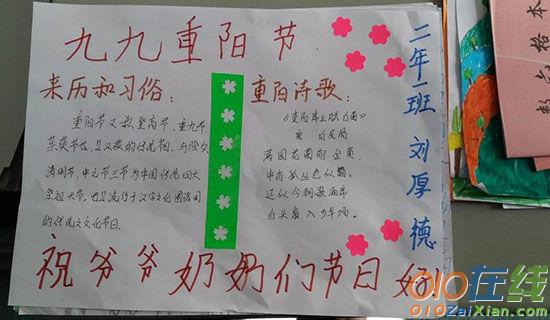 九九重阳节
来历和习俗：
重阳节又称登高节、重九节、
茱萸节也是汉族的传统节日与除夕
清明节、中元节三节为中国传统四大
祭祖大节。也是流行于汉字文化圈诸国
的传统文化节日。
重阳诗歌：
满园花菊郁金黄，
中有孤丛色似霜。
还似今朝歌酒席
白头翁入少年场。
二年一班 刘厚德
祝爷爷奶奶们节日好
010在线
010ZaiXian.com